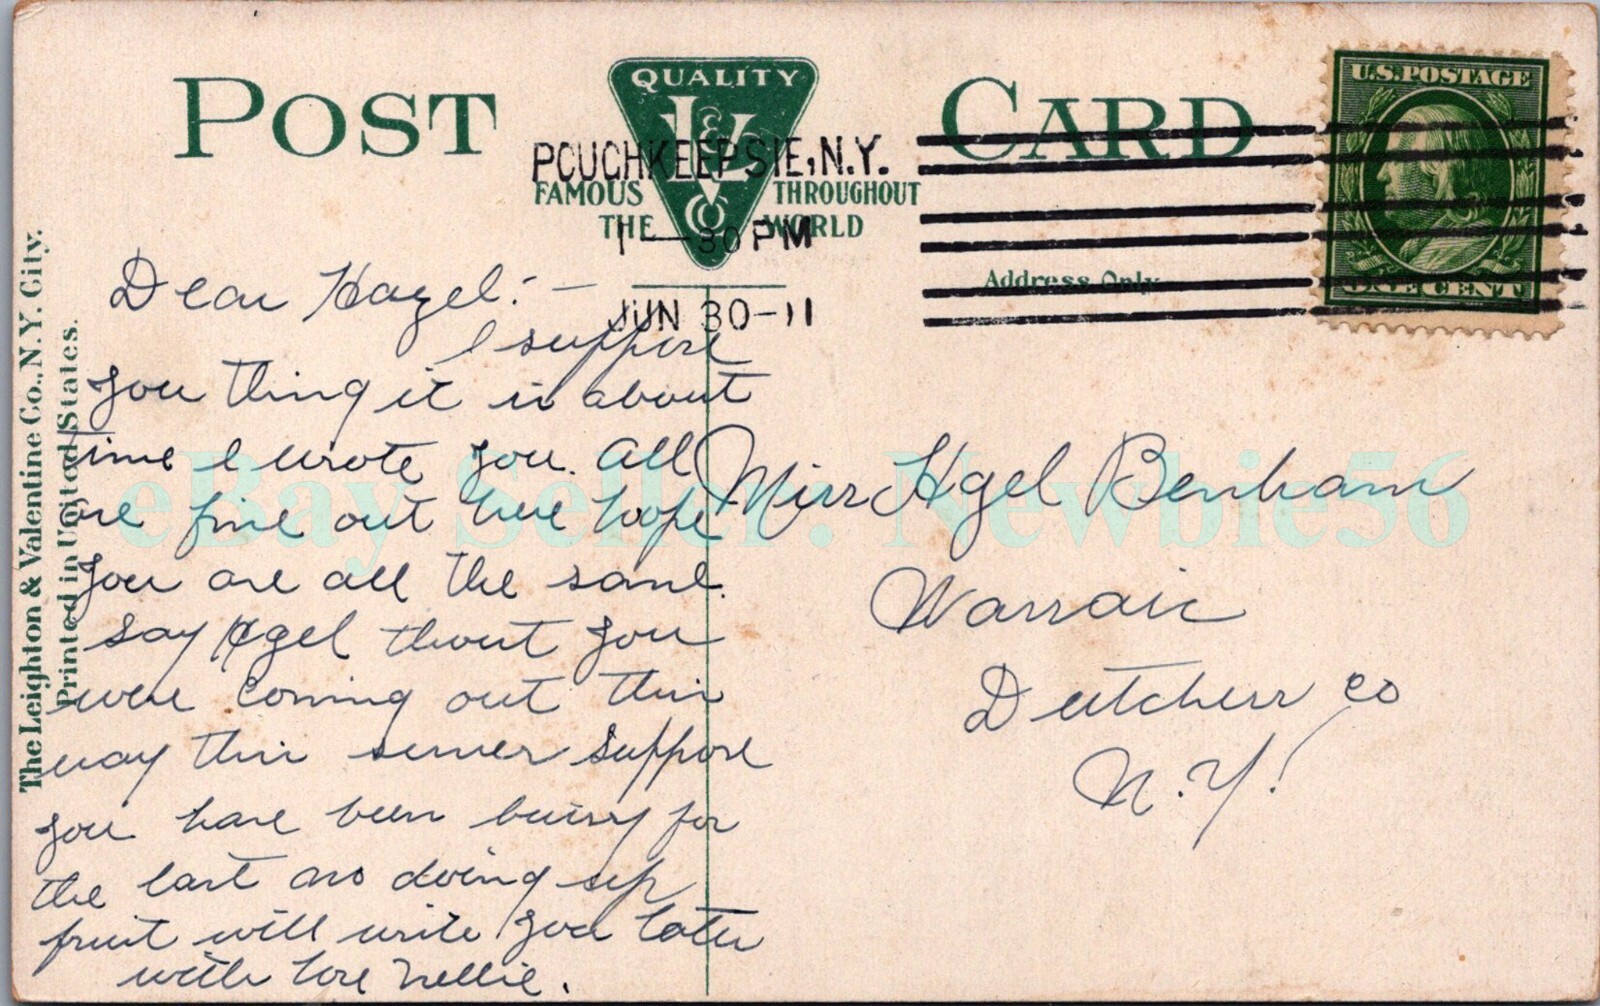 POST CARD
QUALITY
L&V
Co
FAMOUS THROUGHOUT
THE WORLD
POUGHKEEPSIE, N.Y.
1—30 PM
JUN 30-11
U.S. POSTAGE
ONE CENT
Address Only
The Leighton & Valentine Co., N.Y. City.
Printed in United States.
Dear Hazel:-
I suppose
you thing it is about
time I wrote you. All
are fine out here hoope
you are all the same.
Say Hazel thout you
were coming out this
way this sumer suppose
you have been buisy for
the last doing up
fruit will write you later
with love Nellie.
Miss Hazel Benham
Wassaic
Dutchess Co
N.Y.
eBay Seller: Newbie56